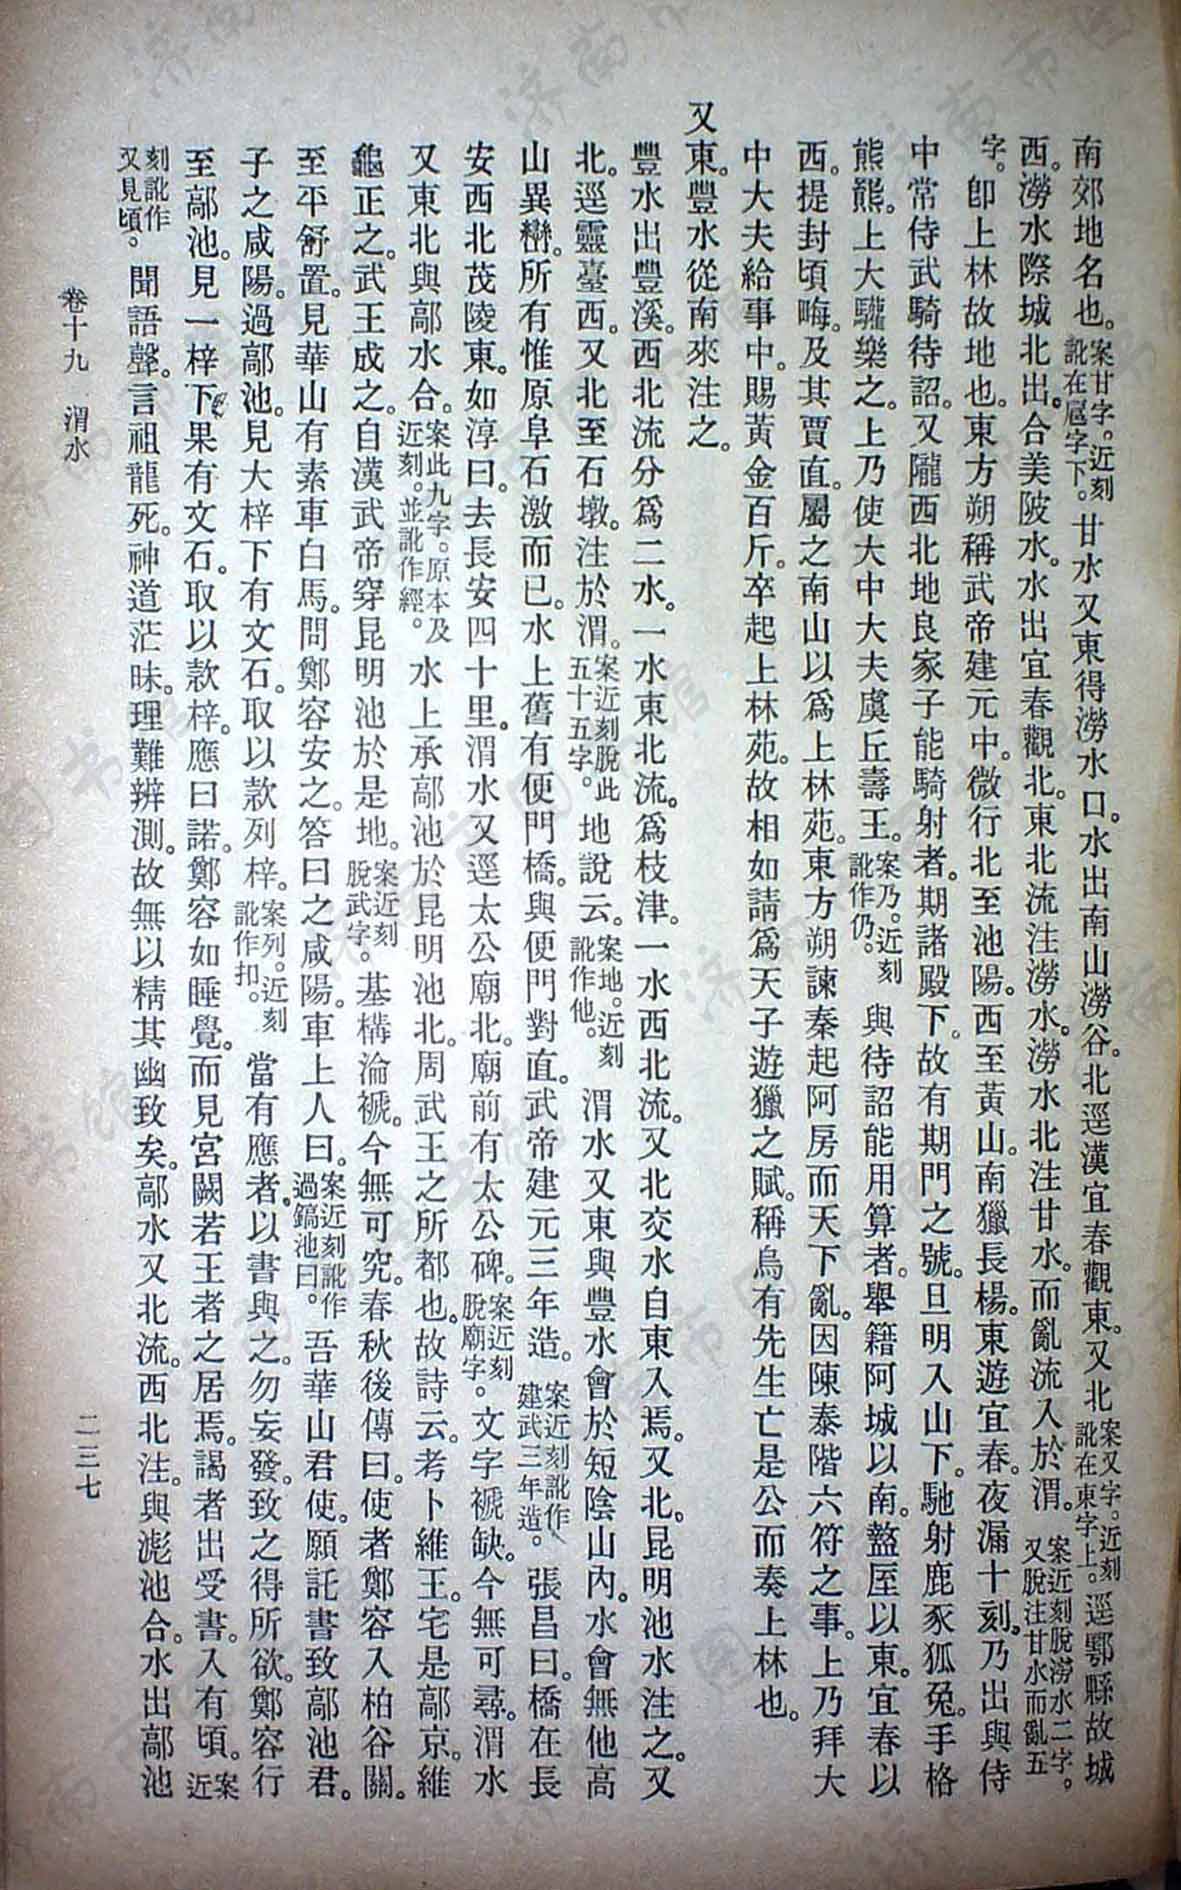 南郊地名也。案甘字。近刻訛在扈字下。甘水又東得澇水口。水出南山澇谷。北逕漢宜春觀東。又北案又字。近刻訛在東字上。逕鄠縣故城
西。澇水際城北出。合美陂水。水出宜春觀北。東北流注澇水。澇水北注甘水。而亂流入於渭。案近刻脫澇水二字。又脫注甘水而亂五
字。卽上林故地也。東方朔稱武帝建元中。微行北至池陽。西至黃山。南獵長楊。東遊宜春。夜漏十刻。乃出與侍
中常侍武騎待詔。又隴西北地良家子能騎射者。期諸殿下。故有期門之號。旦明入山下。馳射鹿豕狐兔。手格
熊熊。上大驩樂之。上乃使大中大夫虞丘壽王。案乃。近刻訛作仍。與待詔能用算者。舉籍阿城以南。盩厔以東。宜春以
西。提封頃畮。及其賈直。屬之南山以爲上林苑。東方朔諫秦起阿房而天下亂。因陳泰階六符之事。上乃拜大
中大夫給事中。賜黃金百斤。卒起上林苑。故相如請爲天子遊獵之賦。稱烏有先生亡是公而奏上林也。
又東。豐水從南來注之。
豐水出豐溪。西北流分爲二水。一水東北流。爲枝津。一水西北流。又北交水自東入焉。又北。昆明池水注之。又
北。逕靈臺西。又北至石墩。注於渭。案近刻脫此五十五字。地說云。案地。近刻訛作他。渭水又東與豐水會於短陰山內。水會無他高
山異巒。所有惟原阜石激而已。水上舊有便門橋。與便門對直。武帝建元三年造。案近刻訛作建武三年造。張昌曰。橋在長
安西北茂陵東。如淳曰。去長安四十里。渭水又逕太公廟北。廟前有太公碑。案近刻脫廟字。文字褫缺。今無可尋。渭水
又東北與鄗水合。案此九字。原本及近刻。並訛作經。水上承鄗池於昆明池北。周武王之所都也。故詩云。考卜維王。宅是鄗京。維
龜正之。武王成之。自漢武帝穿昆明池於是地。案近刻脫武字。基構淪褫。今無可究。春秋後傳曰。使者鄭容入柏谷關。
至平舒置。見華山有素車白馬。問鄭容安之。答曰之咸陽。車上人曰。案近刻訛作過鎬池曰。吾華山君使。願託書致鄗池君。
子之咸陽。過鄗池。見大梓下有文石。取以款列梓。案列。近刻訛作扣。當有應者。以書與之。勿妄發。致之得所欲。鄭容行
至鄗池。見一梓下。果有文石。取以款梓。應曰諾。鄭容如睡覺。而見宮闕若王者之居焉。謁者出受書。入有頃。案近
刻訛作又見頃。聞語聲。言祖龍死。神道茫昧。理難辨測。故無以精其幽致矣。鄗水又北流。西北注。與滮池合。水出鄗池
卷十九 渭水
二三七